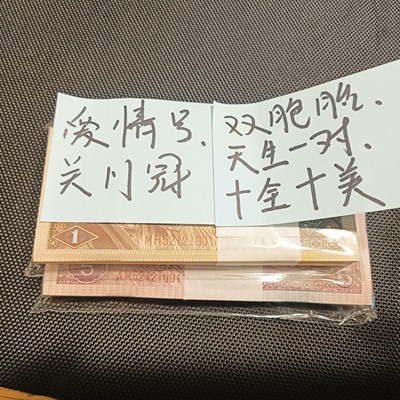 爱情号、
关门冠
双胞胎、
天生一对、
十全十美
1
MH52121001
5
AM52121001